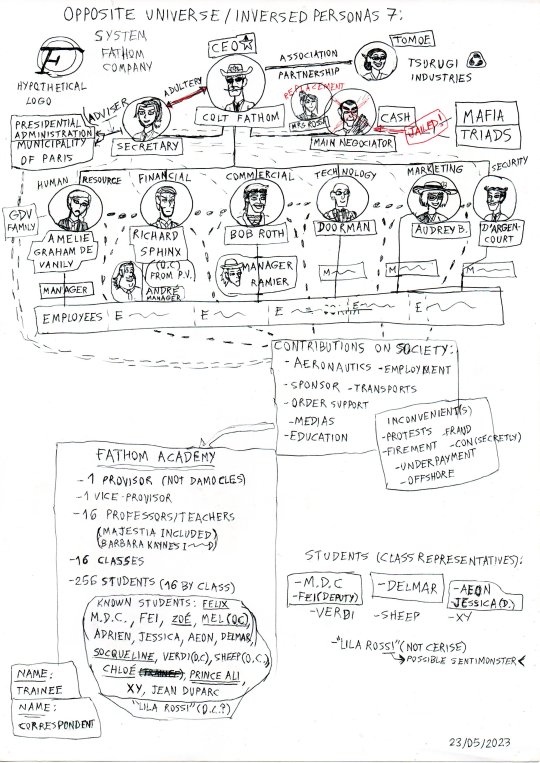 OPPOSITE UNIVERSE/INVERSED PERSONAS 7:
SYSTEM
FATHOM
COMPANY
F
HYPOTHETICAL
LOGO
CEO
ASSOCIATION
PARTNERSHIP
TOMOE
TSURUGI
INDUSTRIES
ADULTERY
ADVISER
COLT FATHOM
REPLACEMENT
MRS ROSSI
CASH
JAILED!
MAFIA
TRIADS
PRESIDENTIAL
ADMINISTRATION
MUNICIPALITY
OF PARIS
SECRETARY
MAIN NEGOCIATOR
HUMAN RESOURCE
FINANCIAL
COMMERCIAL
TECHNOLOGY
MARKETING
SECURITY
GDV
FAMILY
AMELIE
GRAHAM DE
VANILY
RICHARD
SPHINX
(O.C)
FROM P.V.
BOB ROTH
DOORMAN
AUDREY B.
D'ARGEN-
COURT
MANAGER
ANDRÉ
MANAGER
MANAGER
RAMIER
M
M
M
EMPLOYEES
E
E
E
E
E
CONTRIBUTIONS ON SOCIETY:
- AERONAUTICS - EMPLOYMENT
- SPONSOR - TRANSPORTS
- ORDER SUPPORT
- MEDIAS
- EDUCATION
INCONVENIENT(S)
- PROTESTS - FRAUD
- FIREMENT - CON(SECRETLY)
- UNDERPAYMENT
- OFFSHORE
FATHOM ACADEMY
- 1 PROVISOR (NOT DAMOCLES)
- 1 VICE-PROVISOR
- 16 PROFESSORS/TEACHERS
(MAJESTIA INCLUDED)
(BARBARA KAYNES I D)
- 16 CLASSES
- 256 STUDENTS (16 BY CLASS)
KNOWN STUDENTS: FELIX
M.D.C., FEI, ZOÉ, MEL(OC)
ADRIEN, JESSICA, AEON, DELMAR
SOCQUELINE, VERDI(O.C) SHEEP(O.C.)
CHLOÉ (TRAINEE), PRINCE ALI
XY, JEAN DUPARC
"LILA ROSSI" (O.C.?)
STUDENTS (CLASS REPRESENTATIVES):
- M.D.C
- FEI(DEPUTY)
- DELMAR
- AEON
JESSICA(D.)
- VERDI
- SHEEP
- XY
- "LILA ROSSI" (NOT CERISE)
POSSIBLE SENTIMONSTER
NAME:
TRAINEE
NAME:
CORRESPONDENT
23/05/2023